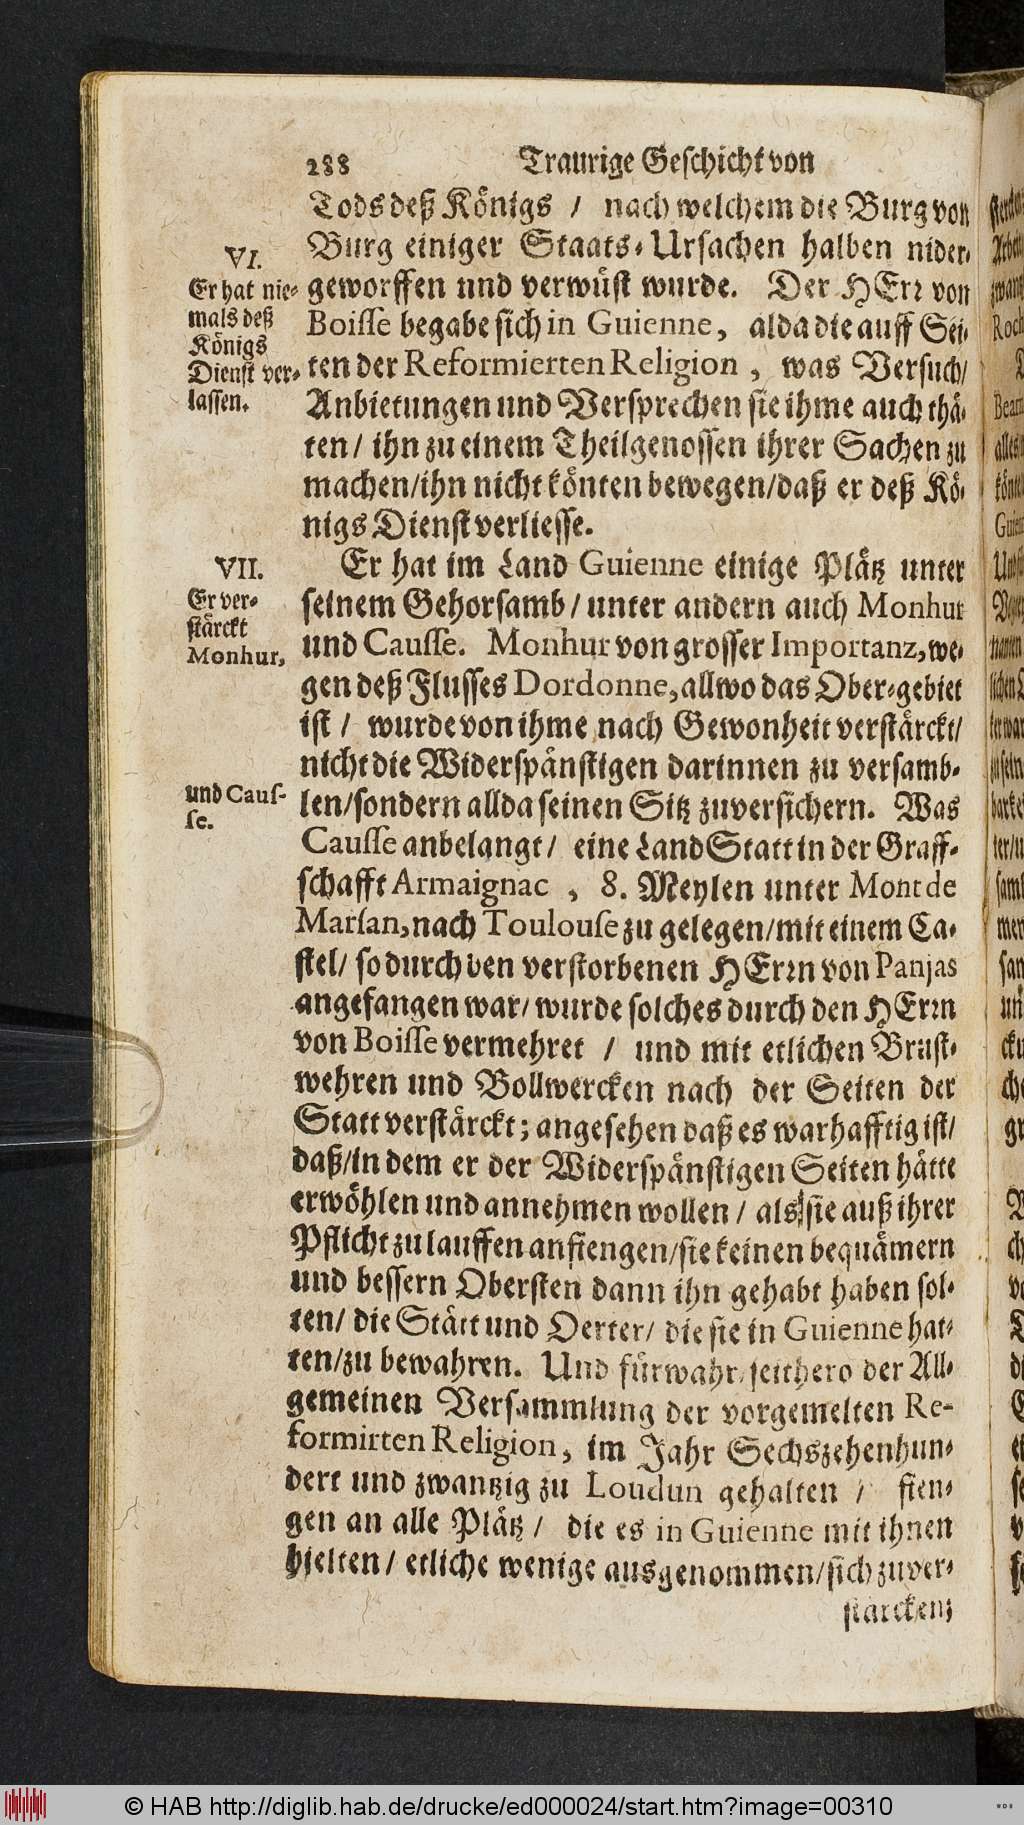 288 Traurige Geschicht von
Tods deß Königs / nach welchem die Burg von
Burg einiger Staats-Ursachen halben nider-
geworffen und verwüst wurde. Der HErr von
Boisse begabe sich in Guienne, alda die auff Sei-
ten der Reformierten Religion, was Versuch/
Anbietungen und Versprechen sie ihme auch thä-
ten / ihn zu einem Theilgenossen ihrer Sachen zu
machen/ihn nicht könten bewegen/daß er deß Kö-
nigs Dienst verliesse.
VI.
Er hat nie-
mals deß
Königs
Dienst ver-
lassen.
Er hat im Land Guienne einige Plätz unter
seinem Gehorsamb / unter andern auch Monhur
und Causse. Monhur von grosser Importanz, we-
gen deß Flusses Dordonne, allwo das Ober-gebiet
ist / wurde von ihme nach Gewonheit verstärckt/
nicht die Widerspänstigen darinnen zu versamb-
len/sondern allda seinen Sitz zuversichern. Was
Causse anbelangt / eine LandStatt in der Graff-
schafft Armaignac, 8. Meylen unter Mont de
Marsan, nach Toulouse zu gelegen/mit einem Ca-
stel/ so durch den verstorbenen HErrn von Panjas
angefangen war/ wurde solches durch den HErrn
von Boisse vermehret / und mit etlichen Brust-
wehren und Bollwercken nach der Seiten der
Statt verstärckt; angesehen daß es warhafftig ist/
daß/in dem er der Widerspänstigen Seiten hätte
erwöhlen und annehmen wollen / als sie auß ihrer
Pflicht zu lauffen anfiengen/sie keinen bequämern
und bessern Obersten dann ihn gehabt haben sol-
ten/ die Stätt und Oerter/ die sie in Guienne hat-
ten/zu bewahren. Und fürwahr/seithero der All-
gemeinen Versammlung der vorgemelten Re-
formirten Religion, im Jahr Sechszehenhun-
dert und zwantzig zu Loudun gehalten / fien-
gen an alle Plätz / die es in Guienne mit ihnen
hielten / etliche wenige ausgenommen/sich zuver-
stärcken;
VII.
Er ver-
stärckt
Monhur,
und Caus-
se.
© HAB http://diglib.hab.de/drucke/ed000024/start.htm?image=00310